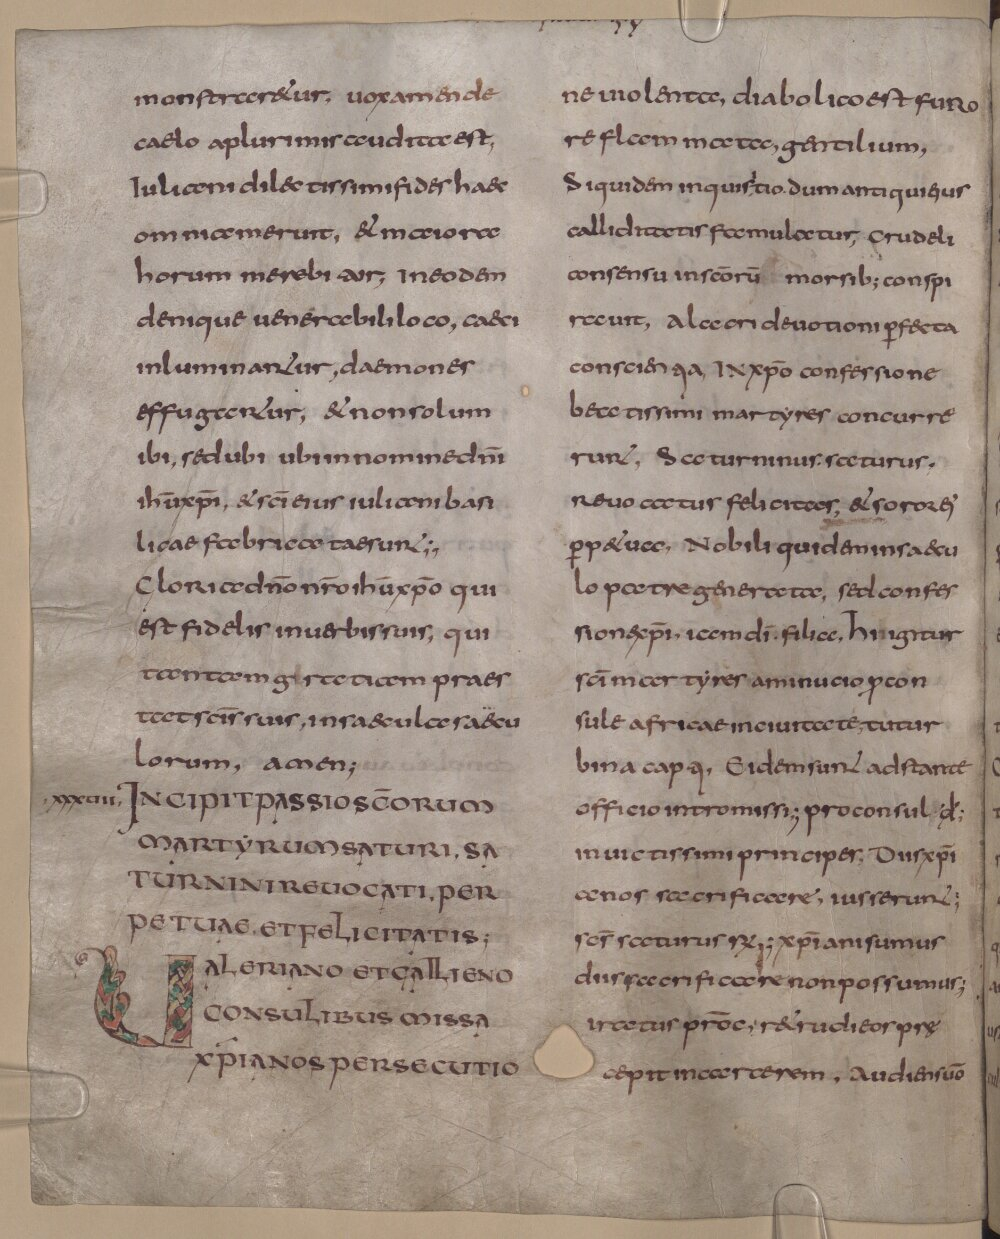 monstraretur, vox amen de
caelo a plurimis audita est,
Iuliani dilectissimi fides haec
omnia meruit, & maiora
horum merebitur, In eodem
denique venerabili loco, caeci
inluminantur, daemones
effugantur, & non solum
ibi, sed ubi ubi in nomine dn̄i
ihū xp̄i, & sc̄i eius iuliani basi
licae fabricatae sunt;,
Gloria dn̄o nr̄o ihū xp̄o qui
est fidelis in verbis suis, qui
tantam gratiam praes
tat sc̄is suis, in saecula saecu
lorum, amen;
.xxxuii, INCIPIT PASSIO SC̄ORUM
MARTYRUM SATURI, SA
TURNINI REUOCATI, PER
PETUAE, ET FELICITATIS;
UALERIANO ET GALLIENO
CONSULIBUS MISSA
XP̄IANOS PERSECUTIO
ne violenta, diabolico est furo
re flammata, gentilium,
Siquidem inquisitio dum antiqui eius
calliditatis famulatur, crudeli
consensu in sc̄orū morsib; conspi
ravit, Alacri devotioni p̄fecta
conscientia, IN xp̄o confessione
beatissimi martyres concurre
runt, Saturninus. saturus.
Revocatus felicitas, & soror eī
p̄p&ua, Nobili quidem in saecu
lo patre generata, sed confes
sione xp̄i, iam dī filia, hi igitur
sc̄i martyres a minucio p̄con
sule africae in civitate, tutur
bina capti, Eidem sunt adstante
officio intromissi; proconsul d;
invictissimi principes, Dus xp̄i
anos sacrificare, iusserunt;
sc̄s saturus r̄; xp̄iani sumus
diis sacrificare non possumus;
iratus proc̄, r&rudi eos prę
cepit in carcerem, Audiens vō